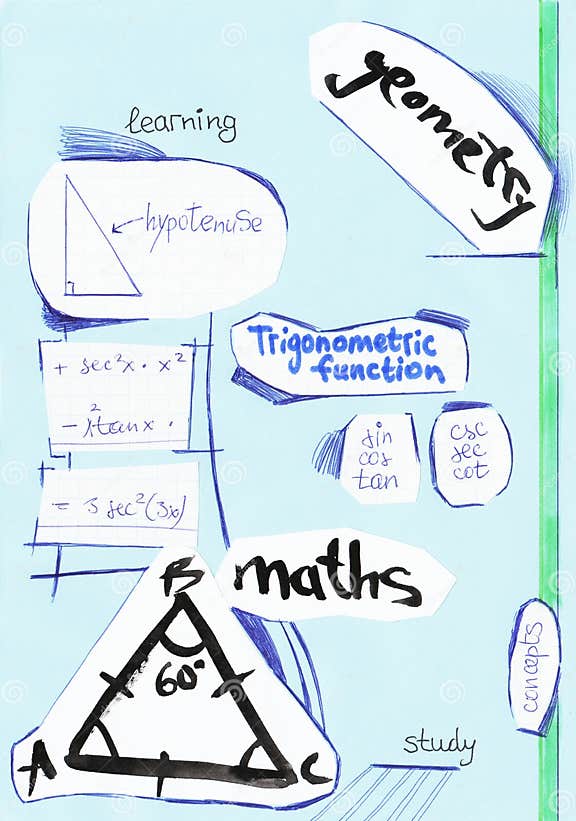 geometry
learning
hypotenuse
Trigonometric
function
+ sec²x · x²
sin
cos
tan
csc
sec
cot
= 3 sec²(3x)
maths
B
60°
A
C
concepts
study